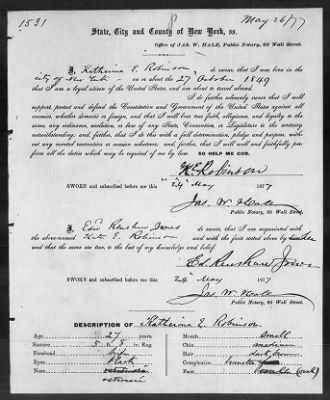 1531
May 26/77
State, City and County of New York, ss.
Office of JAS. W. HALE, Public Notary, 63 Wall Street.
I, Katherine E. Robinson do swear, that I was born in the
city of New York on or about the 27 October 1849
that I am a loyal citizen of the United States, and am about to travel abroad.
I do further solemnly swear that I will
support, protect and defend the Constitution and Government of the United States against all
enemies, whether domestic or foreign, and that I will bear true faith, allegiance, and loyalty to the
same, any ordinance, resolution, or law of any State, Convention, or Legislature to the contrary
notwithstanding; and further, that I do this with a full determination, pledge and purpose, without
any mental reservation or evasion whatever; and, further, that I will well and faithfully perform
all the duties which may be required of me by law. SO HELP ME GOD.
K E Robinson
SWORN and subscribed before me this 24th May 1877
Jas. W. Hale
Public Notary, 63 Wall Street.
I, Edw Renshaw Jones do swear, that I am acquainted with
the above-named Kate E. Robinson and with the facts stated above by her
and that the same are true, to the best of my knowledge and belief.
Ed. Renshaw Jones
SWORN and subscribed before me this 24th May 1877
Jas. W. Hale
Public Notary, 63 Wall Street.
DESCRIPTION OF Katherine E. Robinson
Age, 27 years Mouth small
Stature 5 / 8 in Eng Chin medium
Forehead high Hair dark brown
Eyes black Complexion brunette
Nose Face (oval)